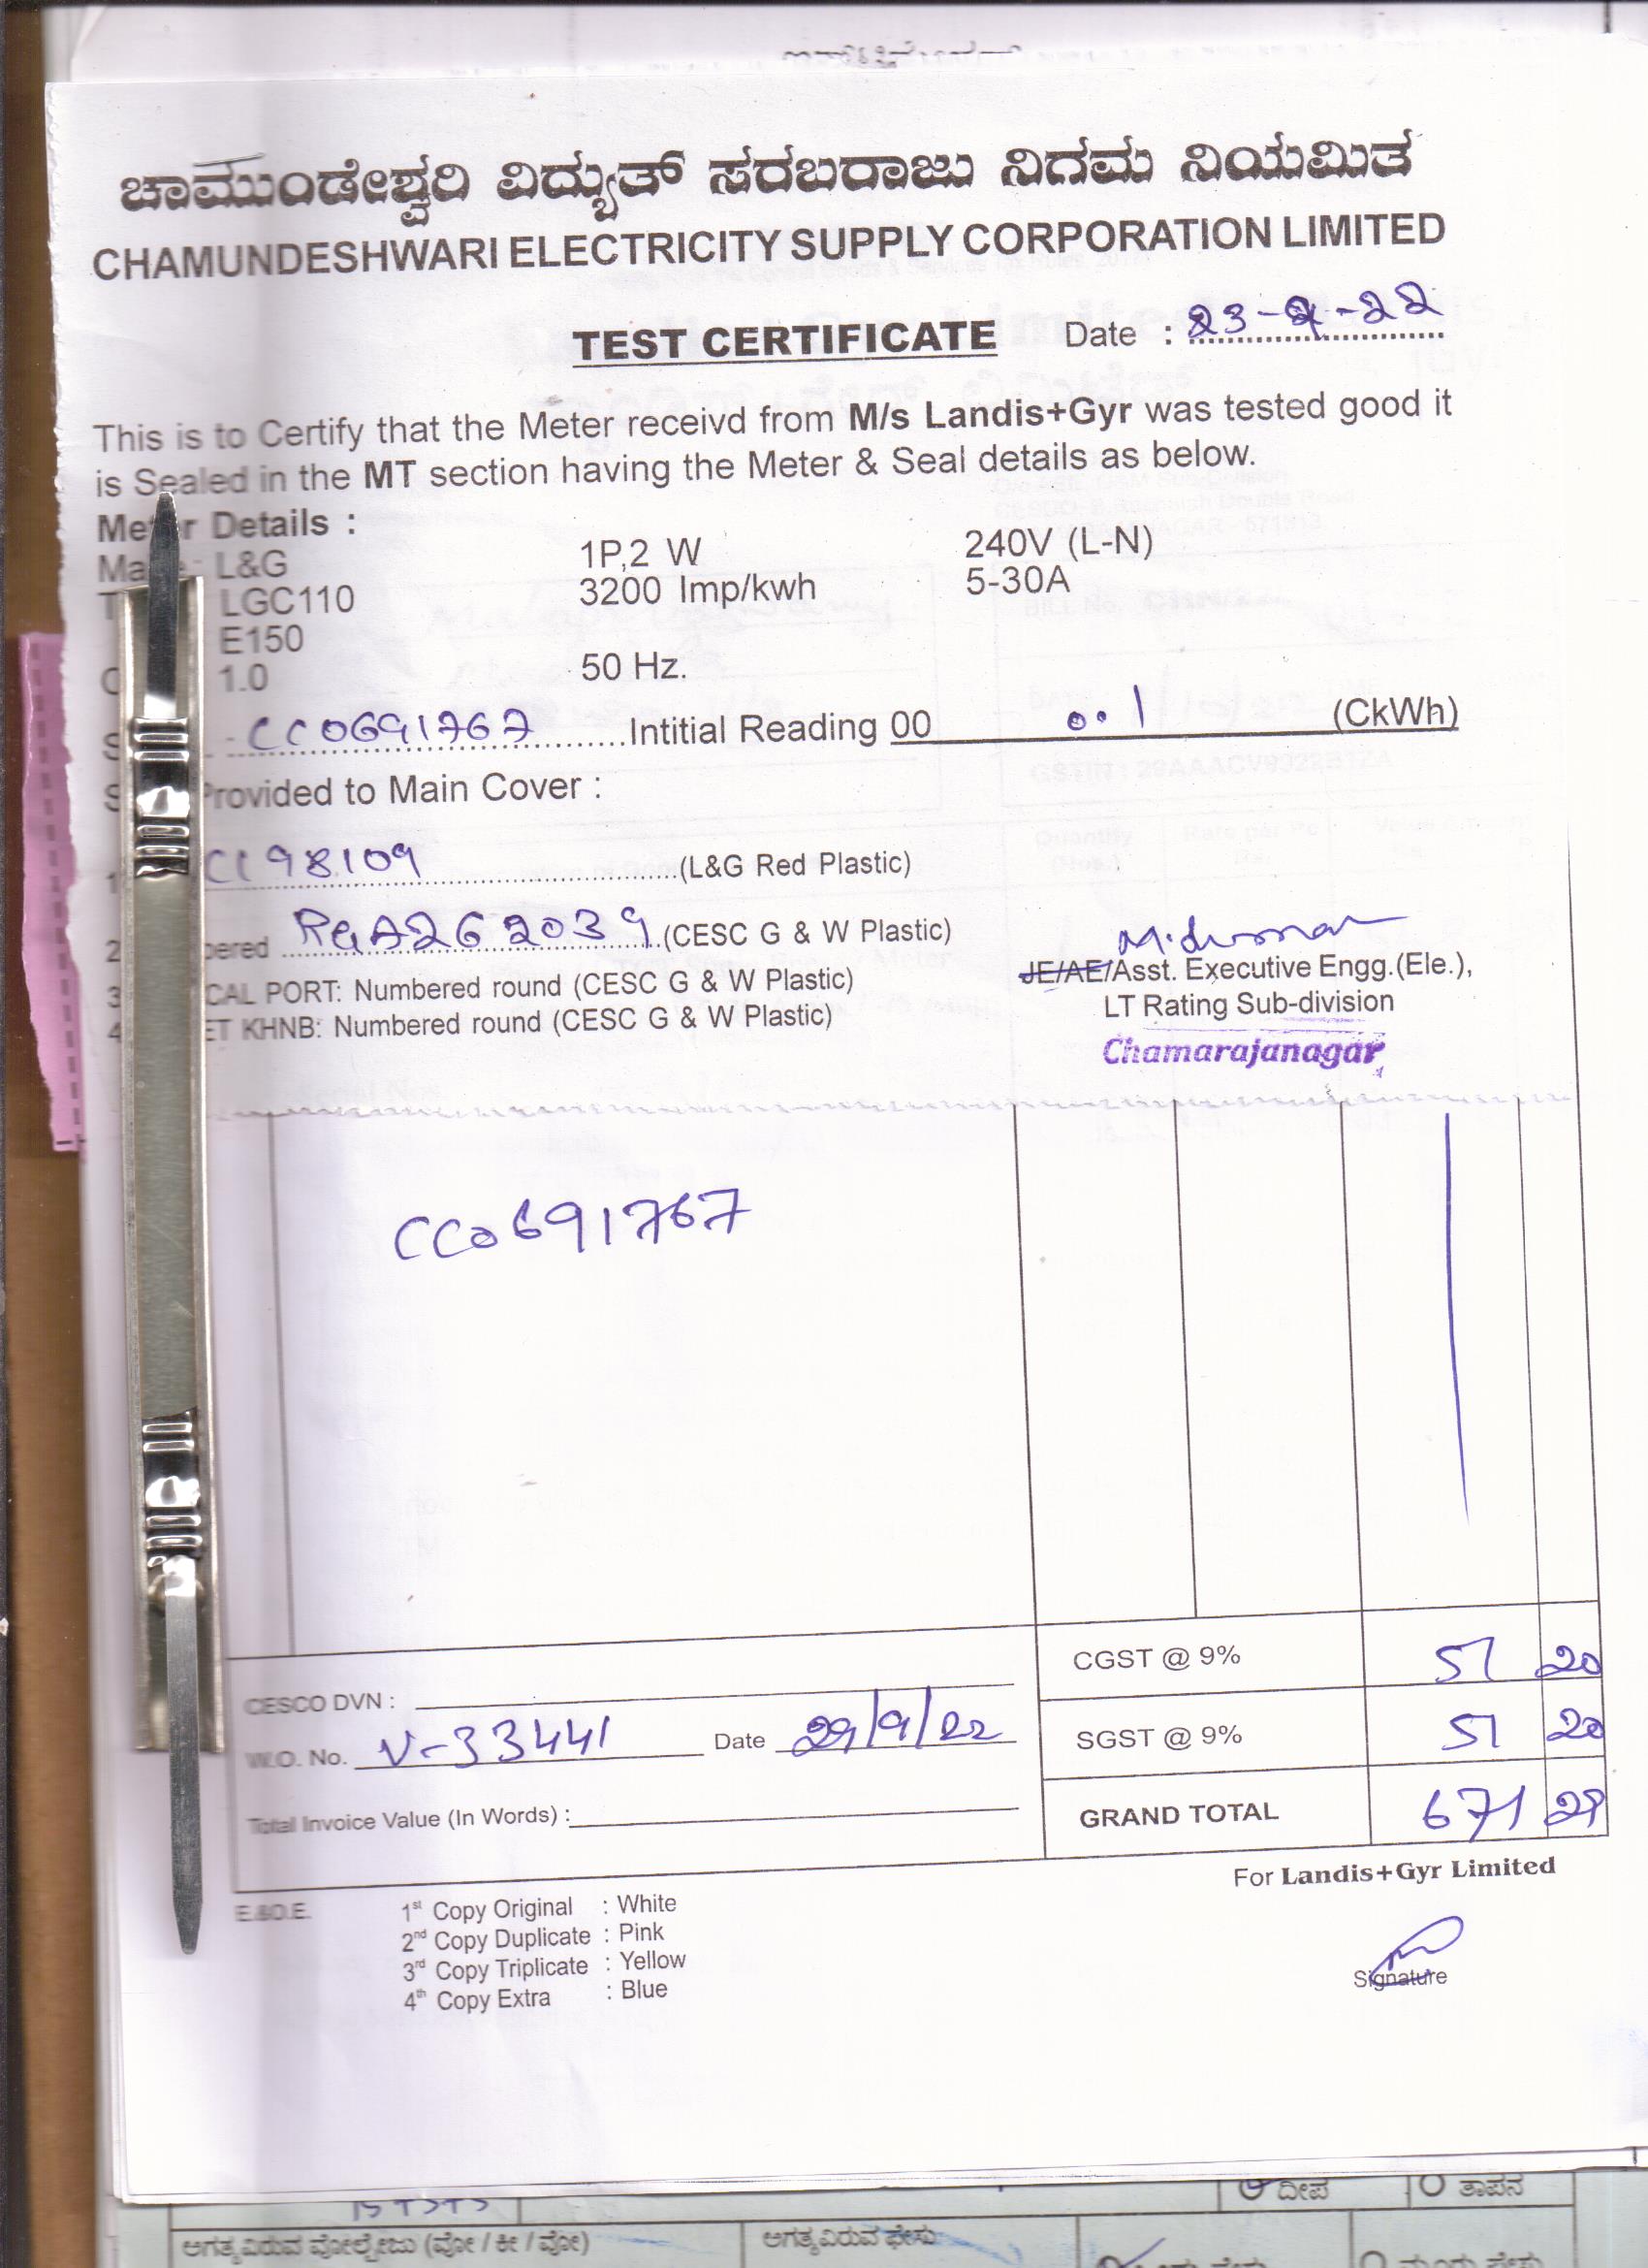 ಚಾಮುಂಡೇಶ್ವರಿ ವಿದ್ಯುತ್ ಸರಬರಾಜು ನಿಗಮ ನಿಯಮಿತ
CHAMUNDESHWARI ELECTRICITY SUPPLY CORPORATION LIMITED
TEST CERTIFICATE Date : 23-9-22
This is to Certify that the Meter receivd from M/s Landis+Gyr was tested good it
is Sealed in the MT section having the Meter & Seal details as below.
Meter Details :
L&G 1P,2 W 240V (L-N)
LGC110 3200 Imp/kwh 5-30A
E150
1.0 50 Hz.
CC0691767 Intitial Reading 00 0.1 (CkWh)
Provided to Main Cover :
CC198109 (L&G Red Plastic)
RGA262039 (CESC G & W Plastic)
PORT: Numbered round (CESC G & W Plastic)
KHNB: Numbered round (CESC G & W Plastic)
JE/AE/Asst. Executive Engg.(Ele.),
LT Rating Sub-division
Chamarajanagar
CC0691767
CGST @ 9% 51 20
CESCO DVN :
W.O. No. V-33441 Date 29/9/22
SGST @ 9% 51 20
Total Invoice Value (In Words) :
GRAND TOTAL 671 29
For Landis+Gyr Limited
E.&O.E.
1st Copy Original : White
2nd Copy Duplicate : Pink
3rd Copy Triplicate : Yellow
4th Copy Extra : Blue
Signature
ದೀಪ ತಾಪನ
ಅಗತ್ಯವಿರುವ ವೋಲ್ಟೇಜು (ವೋ / ಕೀ / ವೋ) ಅಗತ್ಯವಿರುವ ಫೇಸು